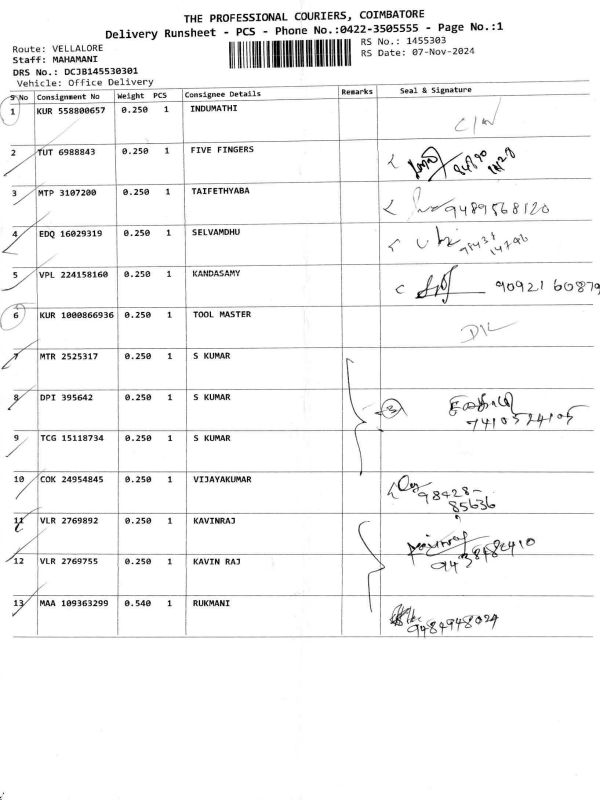 THE PROFESSIONAL COURIERS, COIMBATORE
Delivery Runsheet - PCS - Phone No.:0422-3505555 - Page No.:1
Route: VELLALORE
RS No.: 1455303
Staff: MAHAMANI
RS Date: 07-Nov-2024
DRS No.: DCJB145530301
Vehicle: Office Delivery
S No Consignment No Weight PCS Consignee Details Remarks Seal & Signature
1 KUR 558800657 0.250 1 INDUMATHI
2 TUT 6988843 0.250 1 FIVE FINGERS
3 MTP 3107200 0.250 1 TAIFETHYABA 9489568120
4 EDQ 16029319 0.250 1 SELVAMDHU
5 VPL 224158160 0.250 1 KANDASAMY 9092160879
6 KUR 1000866936 0.250 1 TOOL MASTER
7 MTR 2525317 0.250 1 S KUMAR
8 DPI 395642 0.250 1 S KUMAR 3
7410524105
9 TCG 15118734 0.250 1 S KUMAR
10 COK 24954845 0.250 1 VIJAYAKUMAR 98428-
85636
11 VLR 2769892 0.250 1 KAVINRAJ
12 VLR 2769755 0.250 1 KAVIN RAJ
13 MAA 109363299 0.540 1 RUKMANI
9484948024